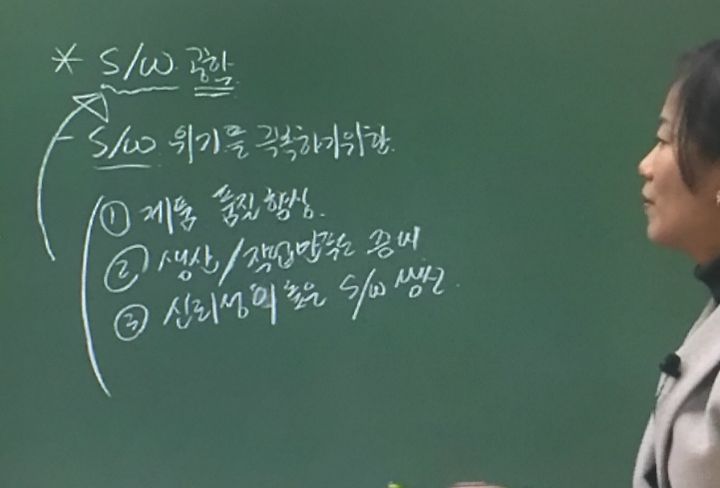 * S/W 공학
- S/W 위기를 극복하기위한
① 제품 품질 향상.
② 생산/작업만족도 증대
③ 신뢰성이 높은 S/W 생산.